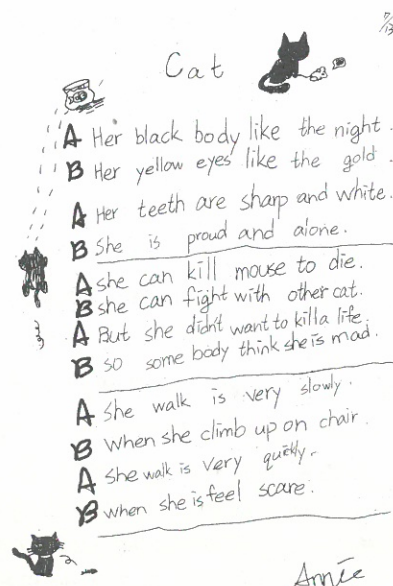 7/13
Cat
A Her black body like the night.
B Her yellow eyes like the gold.
A Her teeth are sharp and white.
B She is proud and alone.
A she can kill mouse to die.
B she can fight with other cat.
A But she didn't want to kill a life.
B so some body think she is mad.
A She walk is very slowly.
B When she climb up on chair.
A She walk is very quickly.
B when she is feel scare.
Annie